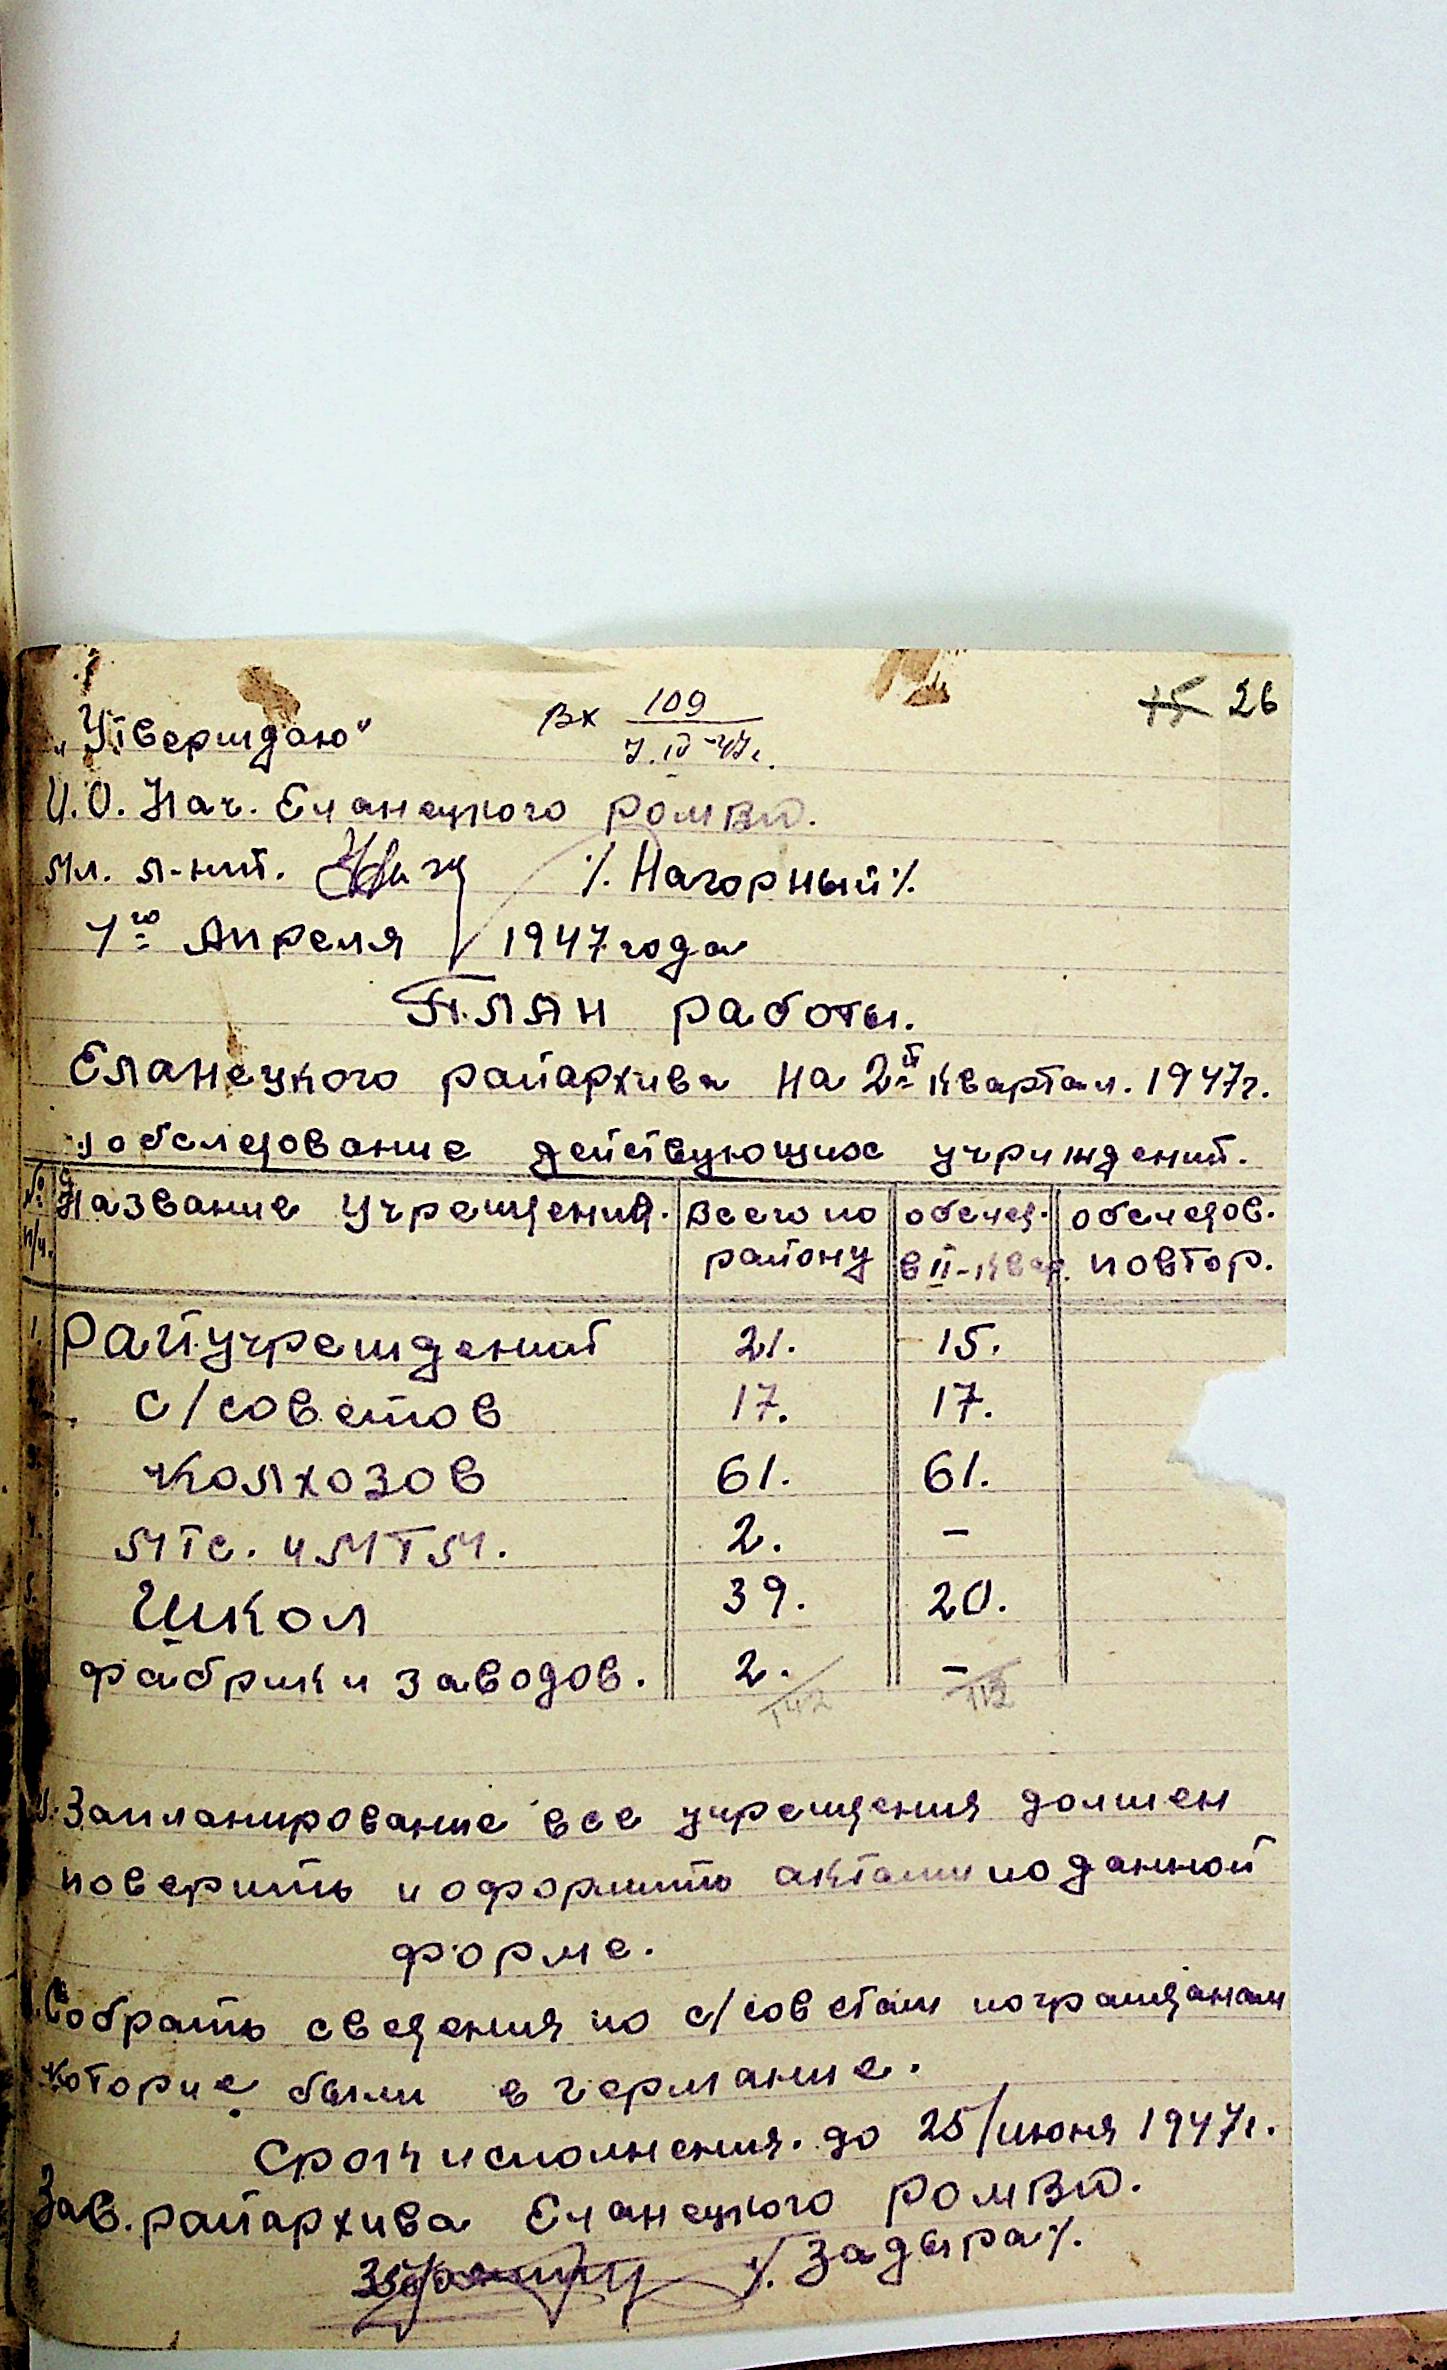 Вх 109 15 26
„Утверждаю“ 7.IV-47г.
И.О. Нач. Еланецкого РОМВД.
мл. л-нит. % Нагорный %
1го Апреля 1947 года
ПЛАН работы.
Еланецкого райархива на 2й квартал. 1947г.
обследование действующих учриждений.
№ п/ч. Название учреждения. Всего по району обслед. в II-квар. обследов. повтор.
1. Райучреждений 21. 15.
с/советов 17. 17.
3. колхозов 61. 61.
4. МТС. и МТМ. 2. –
5. Школ 39. 20.
фабрик и заводов. 2. –
142 113
Запланирование все учреждения должен
поверить и оформить актами по данной
форме.
Собрать сведения по с/советам по гражданам
которие были в германие.
Срок исполнения. до 25/июня 1947г.
Зав. райархива Еланецкого РОМВД.
%. Задыра %.